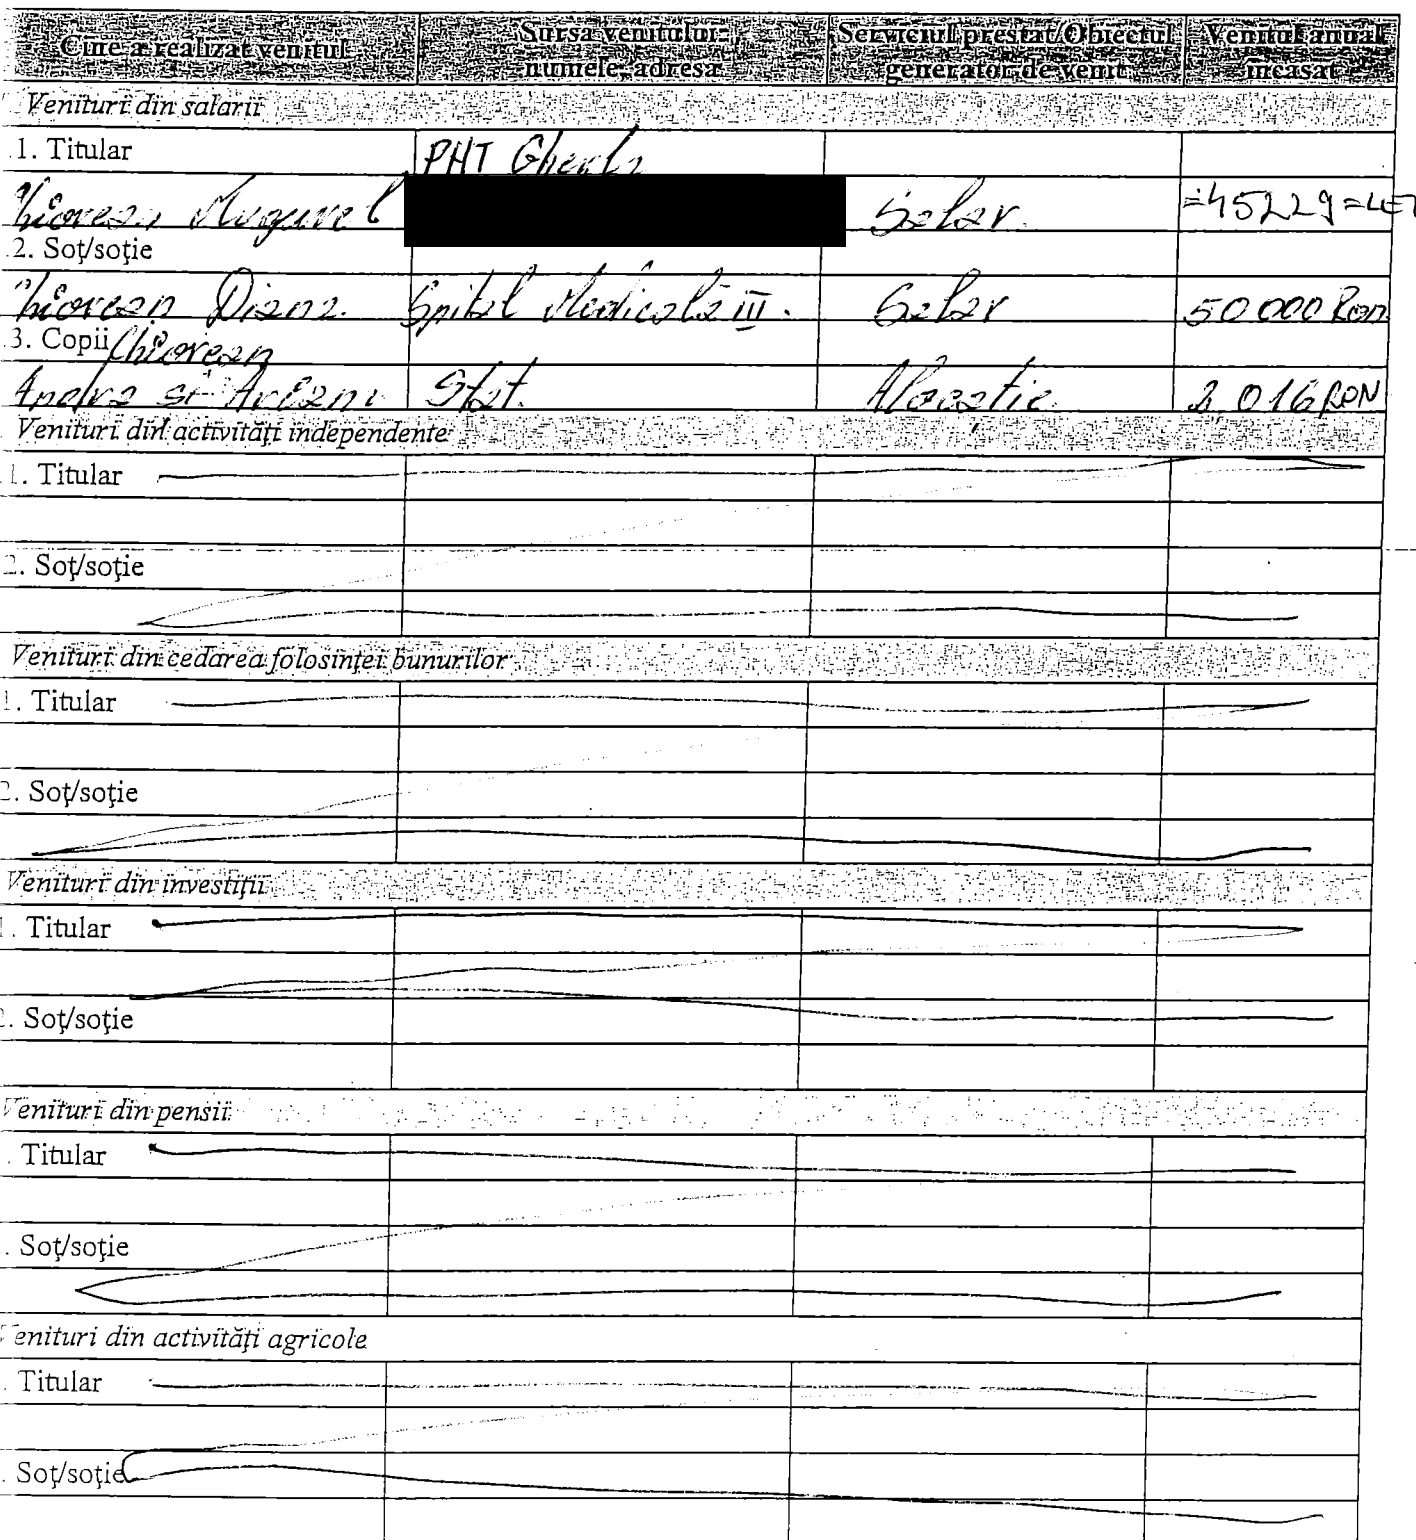 Cine a realizat venitul Sursa venitului: numele, adresa Serviciul prestat/Obiectul generator de venit Venitul anual încasat
Venituri din salarii
1. Titular PHT Gherla
Chiorean Mugurel Salar =45229=LEI
2. Soț/soție
Chiorean Diana Spital Medicală III. Salar 50 000 Ron
3. Copii Chiorean
Andra si Arianna Stat. Alocatie 2 016 RON
Venituri din activități independente
1. Titular
2. Soț/soție
Venituri din cedarea folosinței bunurilor
1. Titular
2. Soț/soție
Venituri din investiții
1. Titular
2. Soț/soție
Venituri din pensii
. Titular
. Soț/soție
Venituri din activități agricole
. Titular
. Soț/soție